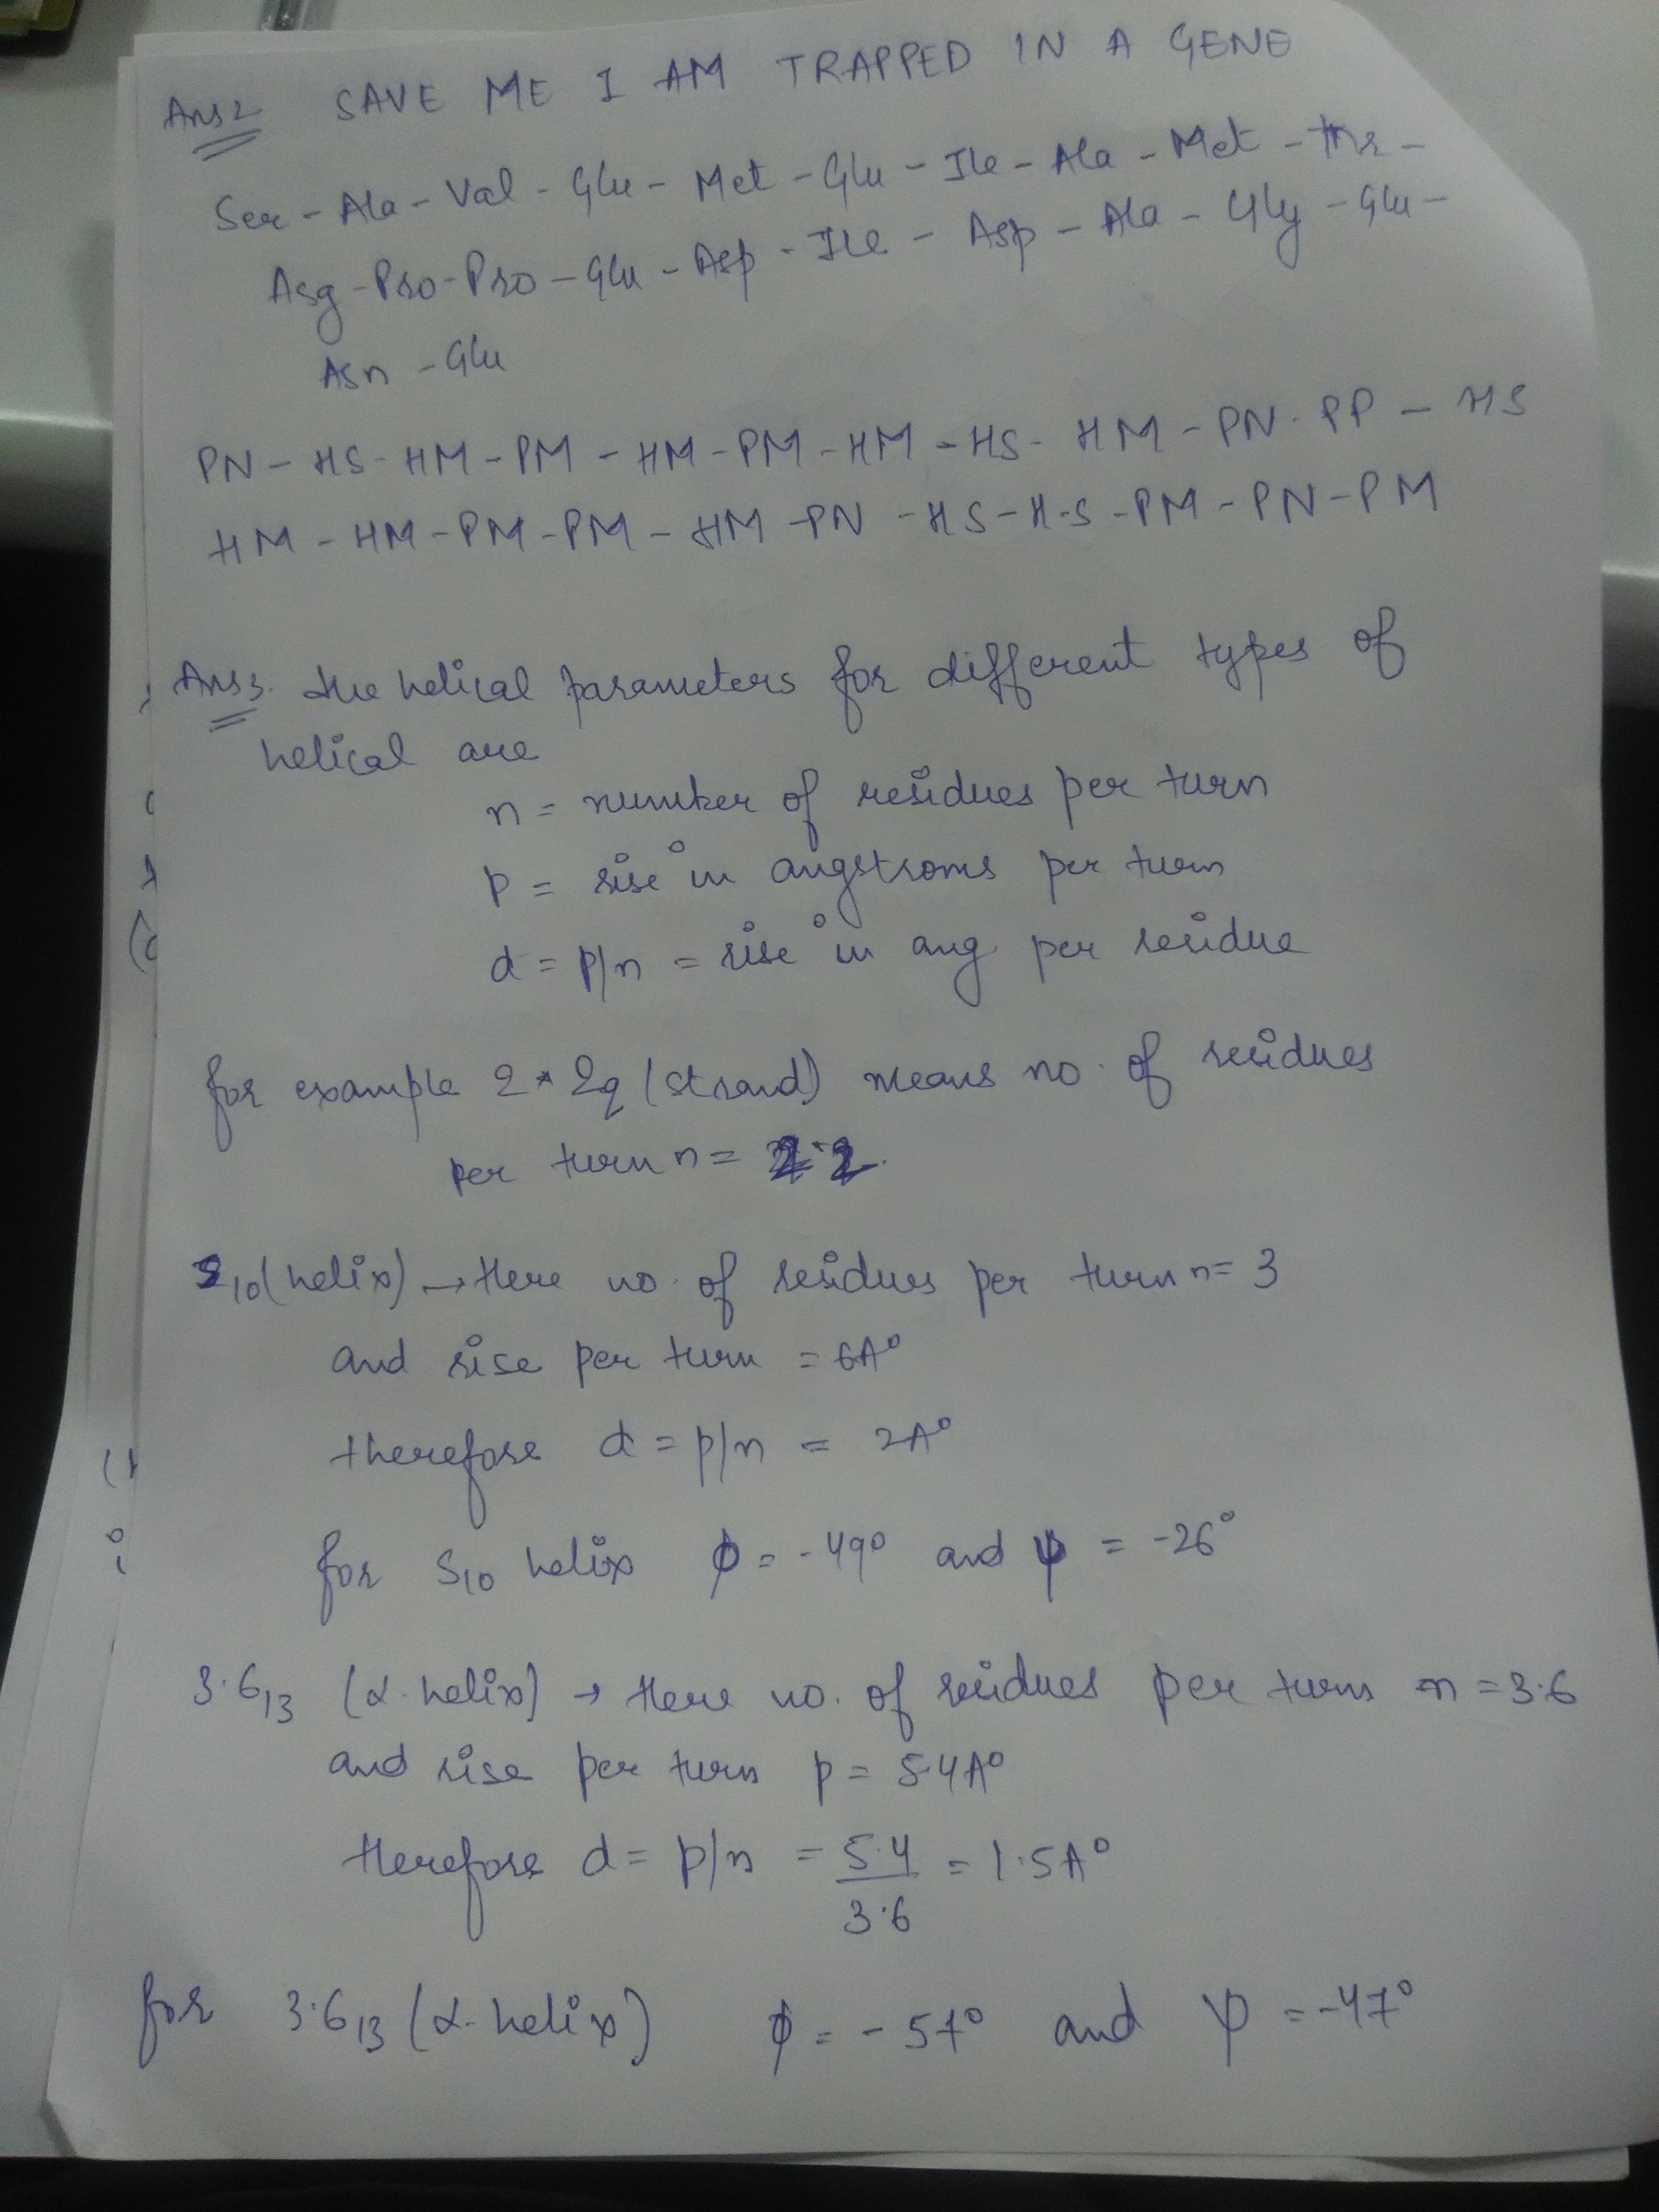 Ans2 SAVE ME I AM TRAPPED IN A GENE
Ser - Ala - Val - Glu - Met - Glu - Ile - Ala - Met - Thr -
Asg - Pro - Pro - Glu - Asp - Ile - Asp - Ala - Gly - Glu -
Asn - Glu
PN - HS - HM - PM - HM - PM - HM - HS - HM - PN - PP - HS
HM - HM - PM - PM - HM - PN - HS - H-S - PM - PN - PM
Ans3. the helical parameters for different types of
helical are
n = number of residues per turn
p = rise in angstroms per turn
d = p/n = rise in ang per residue
for example 2*2q (strand) means no. of residues
per turn n = 2.2.
310 (helix) → Here no. of residues per turn n = 3
and rise per turn = 6A°
therefore d = p/n = 2A°
for S10 helix ϕ = -49° and ψ = -26°
3.613 (α-helix) → Here no. of residues per turn n = 3.6
and rise per turn p = 5.4A°
therefore d = p/n = 5.4/3.6 = 1.5A°
for 3.613 (α-helix) ϕ = -57° and ψ = -47°